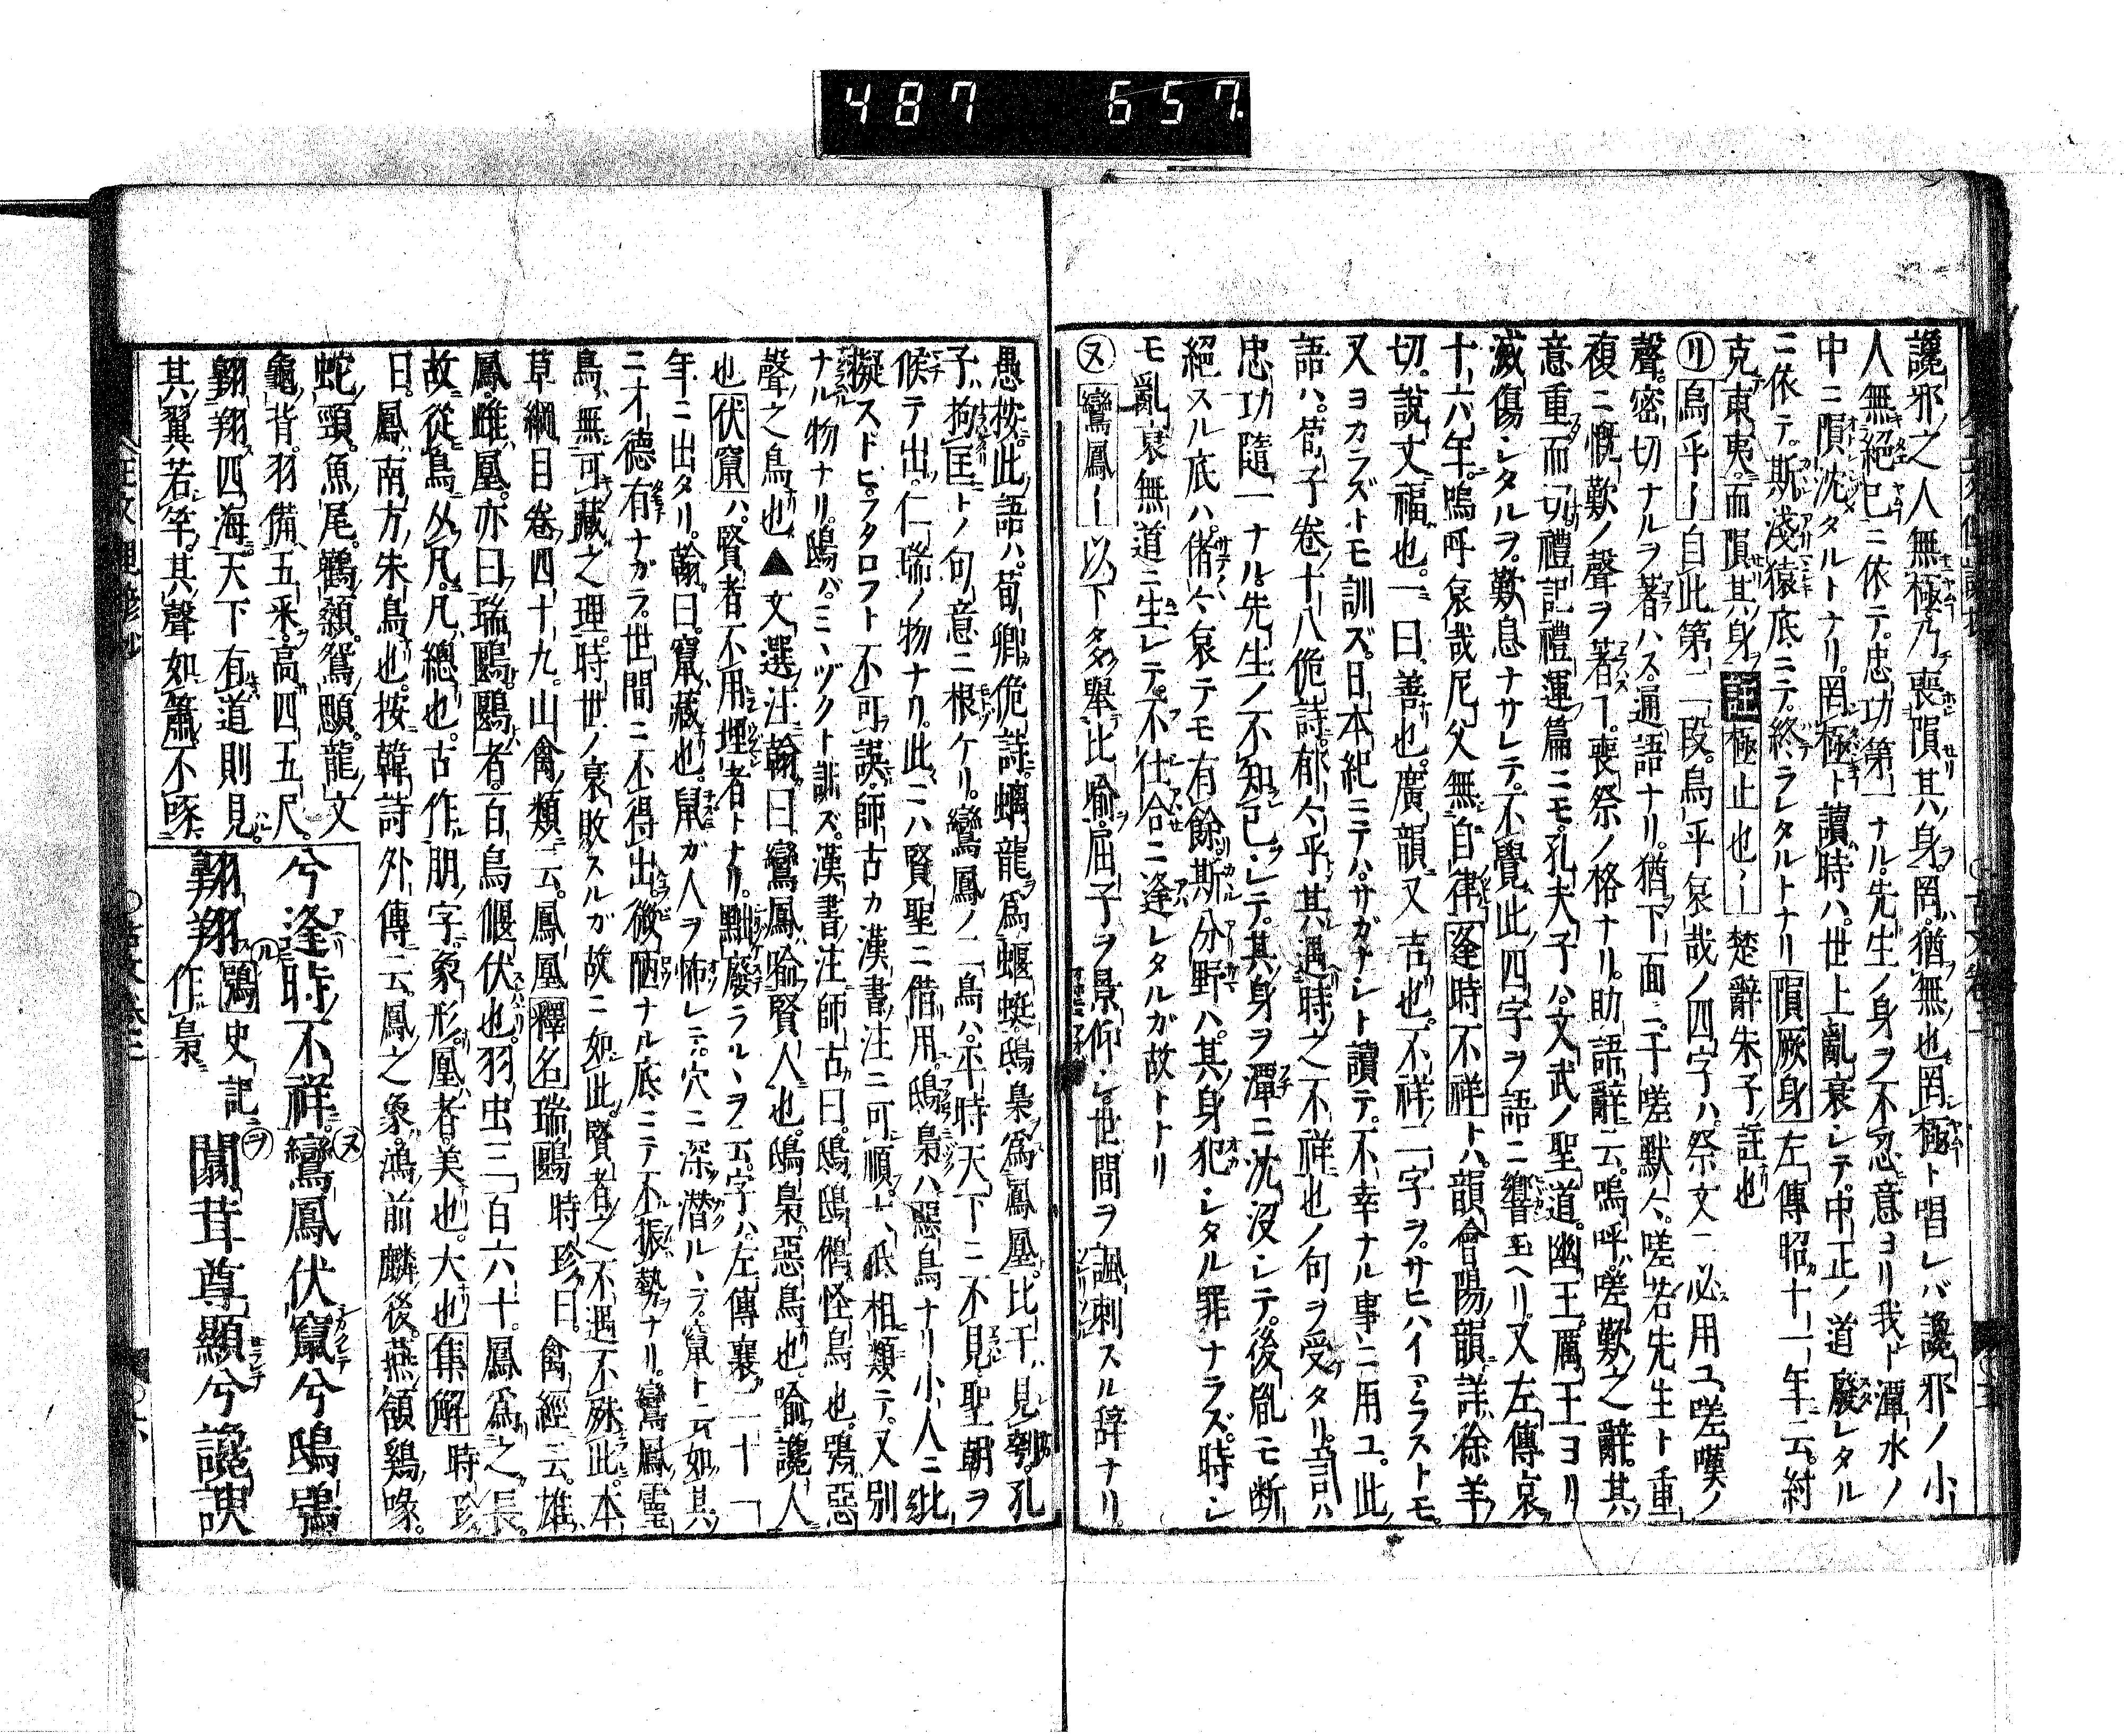 487 657
讒邪之人無極乃喪隕其身罔猶無也罔極ト唱レバ讒邪ノ小
人無絕已ニ依テ忠功第一ナル先生ノ身ヲ不忍意ヨリ我ト潭水ノ
中ニ隕沈タルトナリ罔極ト讀時ハ世上亂衰シテ中正ノ道廢レタル
ニ依テ斯淺猿底ニテ終ラレタルトナリ隕厥身左傳昭十一年云紂
克東夷而隕其身註極止也楚辭朱子註也
リ烏乎自此第二段烏乎哀哉ノ四字ハ祭文ニ必用ユ嗟嘆ノ
聲密切ナルヲ著ハス通語ナリ猶下面ニ于嗟默々嗟若先生ト重
複ニ慨歎ノ聲ヲ著ス喪祭ノ格ナリ助語辭云嗚呼嗟歎之辭其
意重而切禮記禮運篇ニモ孔夫子ハ文武ノ聖道幽王厲王ヨリ
滅傷シタルヲ歎息ナサレテ不覺此四字ヲ語ニ響玉ヘリ又左傳哀
十六年嗚呼哀哉尼父無自律逢時不祥トハ韻會陽韻詳徐羊
切說文福也一曰善也廣韻又吉也不祥二字ヲサヒハイアラストモ
又ヨカラズトモ訓ズ日本紀ニテハサガナシト讀テ不幸ナル事ニ用ユ此
語ハ荀子卷十八佹詩郁々乎其遇時之不祥也ノ句ヲ受タリ言ハ
忠功隨一ナル先生ノ不知已シテ其身ヲ潭ニ沈沒シテ後胤モ断
絕スル底ハ偖々哀テモ有餘斯分野ハ其身犯シタル罪ナラズ時シ
モ亂衰無道ニ生レテ不仕合ニ逢レタルガ故トトリ
ヌ鸞鳳以下多舉比喻屈子ヲ景仰シ世間ヲ諷刺スル辞ナリ
愚按此語ハ荀卿佹詩螭龍爲蝘蜓鴟梟爲鳳凰比干見刳孔
子拘匡トノ句意ニ根ケリ鸞鳳ノ二鳥ハ平時天下ニ不見聖朝ヲ
候テ出仁瑞ノ物ナリ此ニハ賢聖ニ借用鴟梟ハ惡鳥ナリ小人ニ比
擬スドビフクロフト不可誤師古カ漢書注ニ可順十八相類テ又別
ナル物ナリ鴟バミヽヅクト訓ズ漢書注師古曰鴟鴟鵂怪鳥也鴞惡
聲之鳥也▲文選注翰曰鸞鳳喻賢人也鴟梟惡鳥也喻讒人
也伏竄ハ賢者不用埋者トナリ黜廢ラルヽヲ云字ハ左傳襄二十一
年ニ出タリ翰曰竄藏也鼠ガ人ヲ怖レテ穴ニ深潜ルヽヲ竄ト云如其
ニ才德有ナガラ世間ニ不得出微陋ナル底ニテ不振勢ナリ鸞鳳靈
鳥無可藏之理時世ノ衰敗スルガ故ニ如此賢者之不遇不殊此本
草綱目卷四十九山禽類云鳳凰釋名瑞鶠時珍曰禽經云雄
鳳雌凰亦曰瑞鶠鶠者百鳥偃伏也羽虫三百六十鳳爲之長
故從鳥从凡凡總也古作朋字象形凰者美也大也集解時珍
曰鳳南方朱鳥也按韓詩外傳云鳳之象鴻前麟後燕頷鷄喙
蛇頸魚尾鸛顙鴛顋龍文
龜背羽備五釆高四五尺
翱翔四海天下有道則見
其翼若竿其聲如簫不啄
兮逢時不祥ヌ鸞鳳伏竄兮鴟鴞
翱翔ル鴞史記作梟ヲ闒茸尊顯兮讒諛